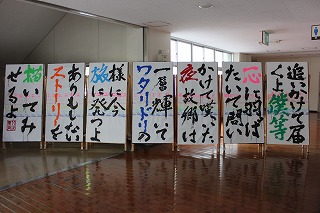 追いかけて届
くよう僕等
一心に羽ば
たいて問い
かけて嘆いた
夜故郷は
一層輝いて
ワタリドリの
様に今
旅に発つよ
ありもしない
ストーリーを
描いてみ
せるよ